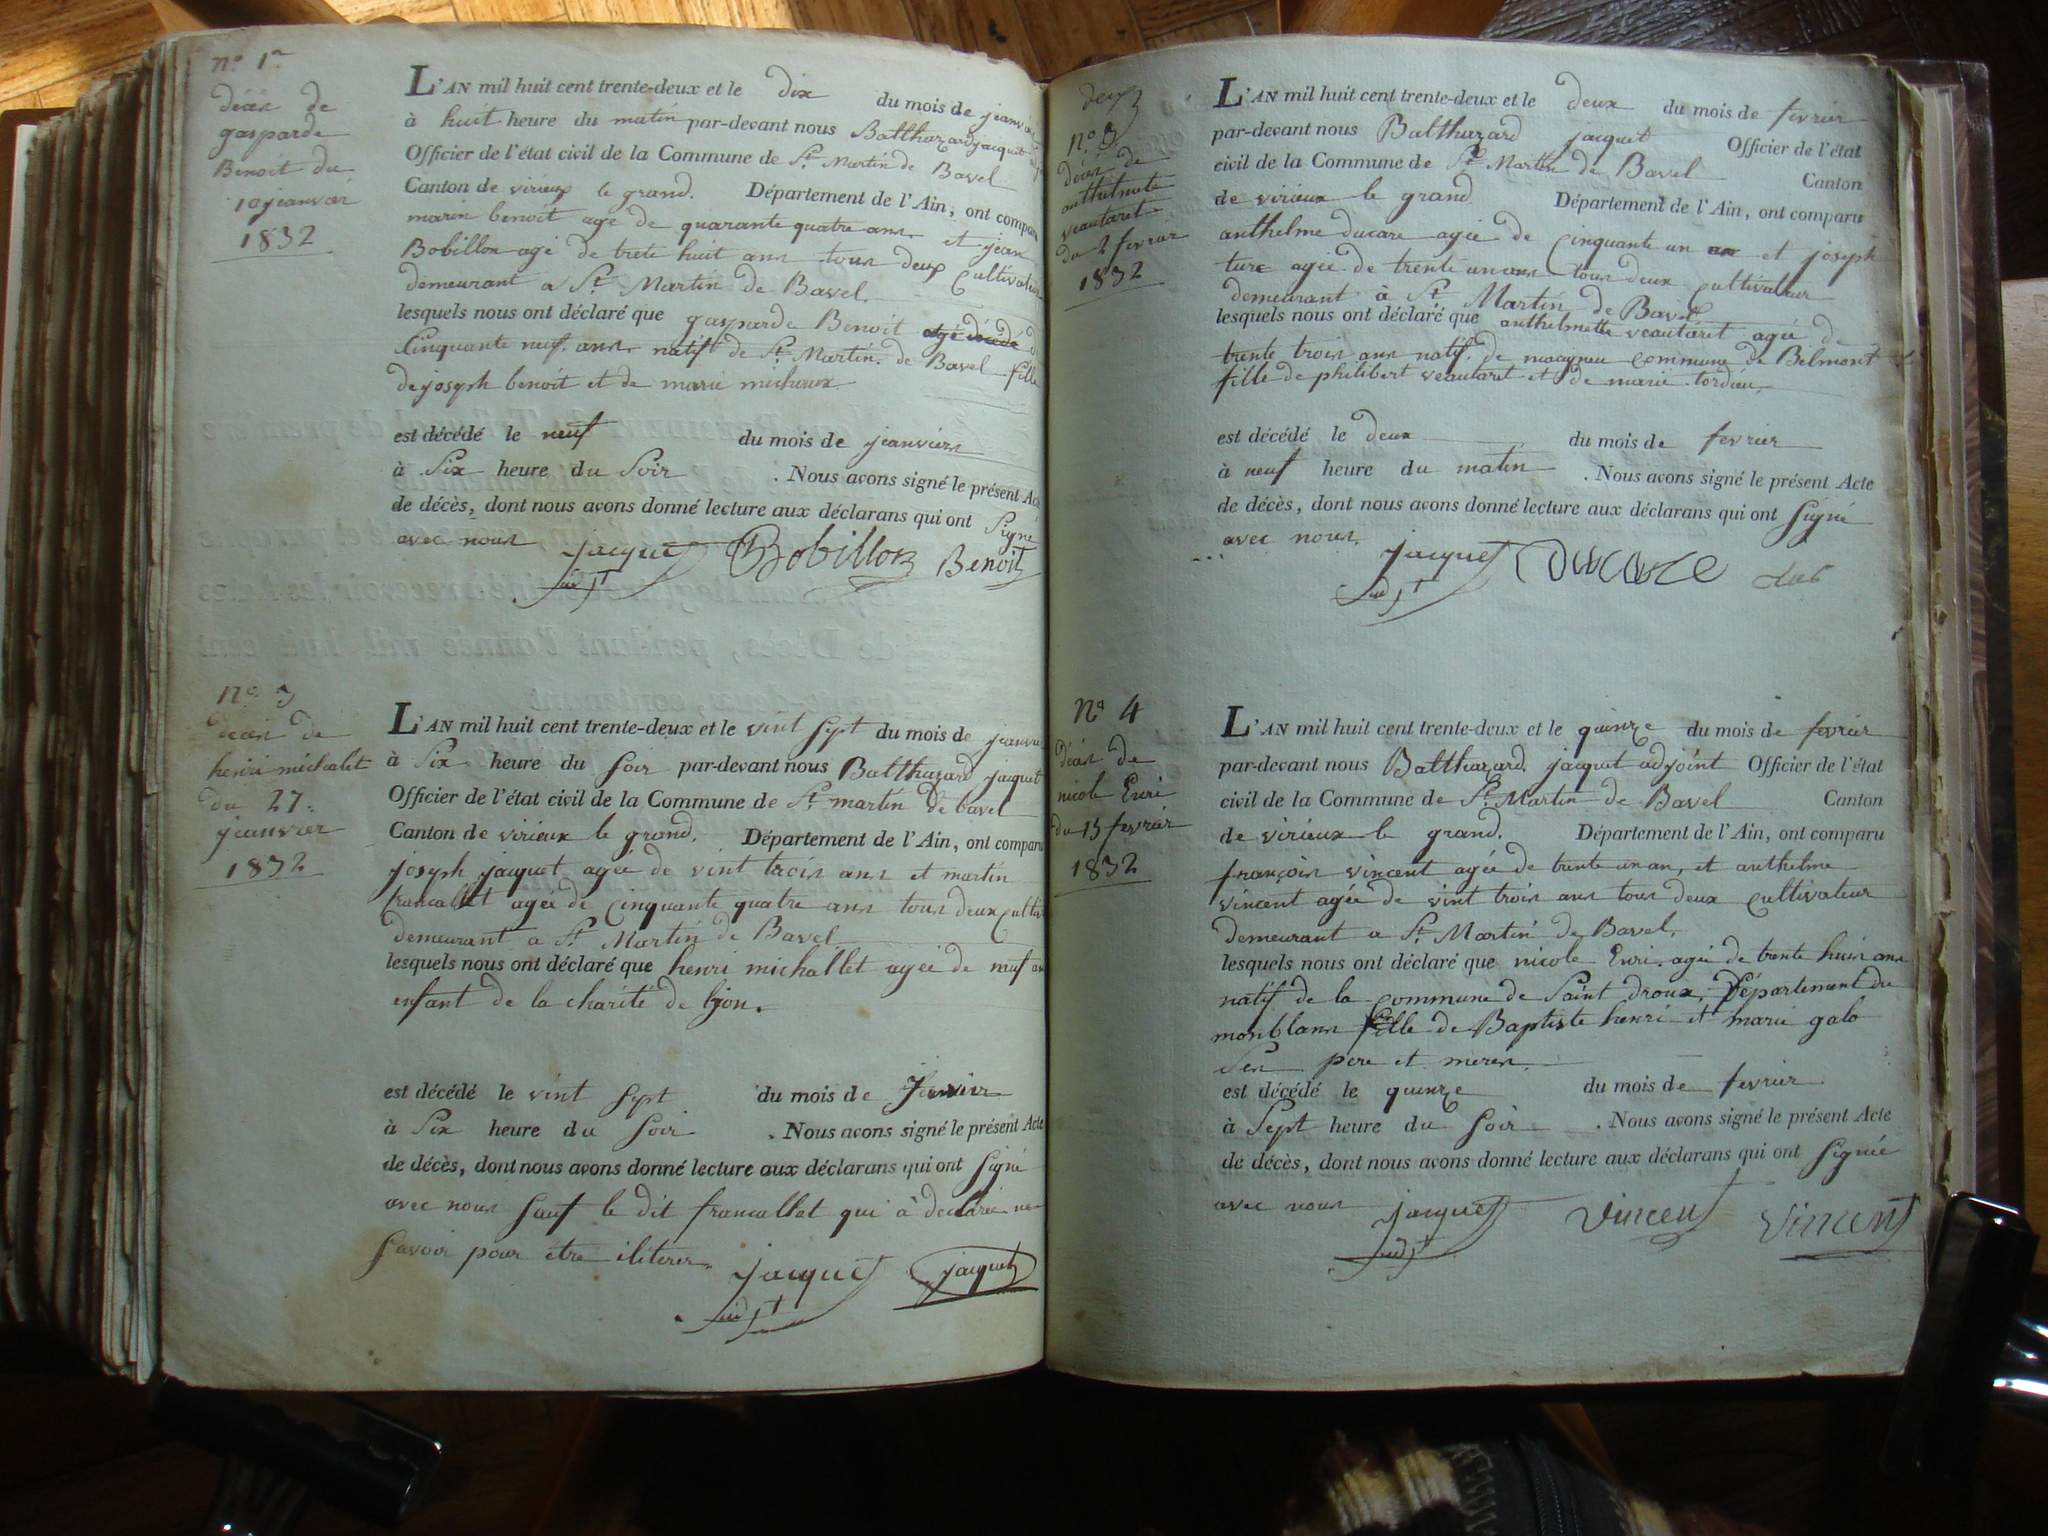 n.° 1er
décès de
gasparde
Benoit du
10 jeanvier
1832
L'AN mil huit cent trente-deux et le dix du mois de jeanvier
à huit heure du matin par-devant nous Balthazard jacquet
Officier de l'état civil de la Commune de St Martin de Bavel
Canton de virieux le grand. Département de l'Ain, ont comparu
marin benoit agé de quarante quatre ans et jean
Bobillon agé de trete huit ans tous deux Cultivateur
demeurant a St Martin de Bavel
lesquels nous ont déclaré que gasparde Benoit
Cinquante neuf ans natif de St Martin de Bavel fille
de joseph benoit et de marie
est décédé le neuf du mois de jeanviers
à Six heure du Soir . Nous avons signé le présent Acte
de décès, dont nous avons donné lecture aux déclarans qui ont Signé
avec nous jacquet Bobillon Benoit
adjt
n.°
décès de
henri michalet
du 27
jeanvier
1832
L'AN mil huit cent trente-deux et le vint Sept du mois de jeanvier
à Six heure du Soir par-devant nous Balthazard jacquet
Officier de l'état civil de la Commune de St martin de bavel
Canton de virieux le grand. Département de l'Ain, ont comparu
joseph jacquet agée de vint trois ans et martin
francallet agée de Cinquante quatre ans tous deux
demeurant a St Martin de Bavel
lesquels nous ont déclaré que henri michallet agée de neuf an
enfant de la charité de lyon.
est décédé le vint Sept du mois de
à Six heure du Soir . Nous avons signé le présent Acte
de décès, dont nous avons donné lecture aux déclarans qui ont Signé
avec nous Sauf le dit francallet qui à declarée ne
Savoir pour etre iliterer. jacquet jacquet
adjt
deux
n.° 3
décés de
anthelmete
veautaret
du 2 fevrier
1832
L'AN mil huit cent trente-deux et le deux du mois de fevrier
par-devant nous Balthazard jacquet Officier de l'état
civil de la Commune de St Martin de Bavel Canton
de virieux le grand Département de l'Ain, ont comparu
anthelme ducare agée de Cinquante un an et joseph
agée de trente un ans tous deux Cultivateur
demeurant à St Martin de Bavel
lesquels nous ont déclaré que anthelmette veautaret agée de
trente trois ans natif de commune de Belmont
fille de philibert veautaret et de marie tordieu
est décédé le deux du mois de fevrier
à neuf heure du matin . Nous avons signé le présent Acte
de décès, dont nous avons donné lecture aux déclarans qui ont Signé
avec nous. jacquet
adjt
N.° 4
décès de
nicole Enri
du 15 fevrier
1832
L'AN mil huit cent trente-deux et le quinze du mois de fevrier
par-devant nous Balthazard jacquet adjoint Officier de l'état
civil de la Commune de St Martin de Bavel Canton
de virieux le grand. Département de l'Ain, ont comparu
françois vincent agée de trente un an, et anthelme
vincent agée de vint trois ans tous deux Cultivateur
demeurant a St Martin de Bavel,
lesquels nous ont déclaré que nicole Enri agée de trente huis ans
natif de la commune de Saint droux, Département du
monblans fille de Baptiste henri et marie galo
Ses pere et meres
est décédé le quinze du mois de fevrier
à Sept heure du Soir . Nous avons signé le présent Acte
de décès, dont nous avons donné lecture aux déclarans qui ont Signée
avec nous jacquet Vincent Vincent
adjt